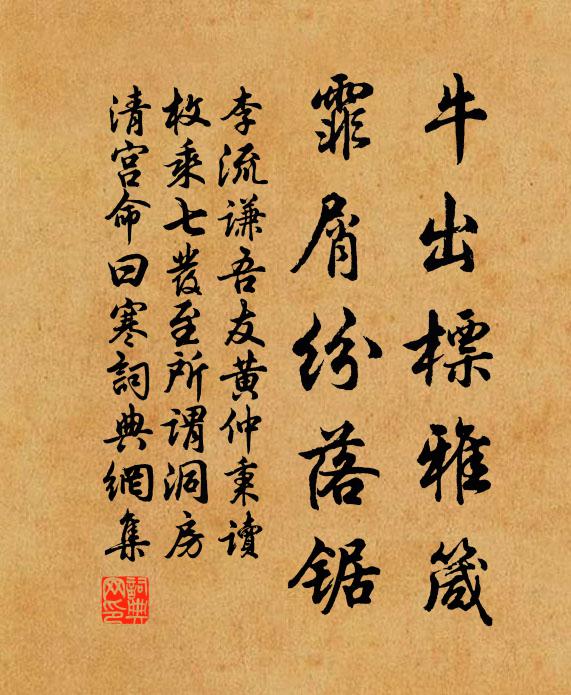 牛出標雅箴
霏屑紛落鋸
李流謙吾友黄仲秉讀
枚乘七發至所謂洞房
清宫命曰寒詞典網集
詞典網印